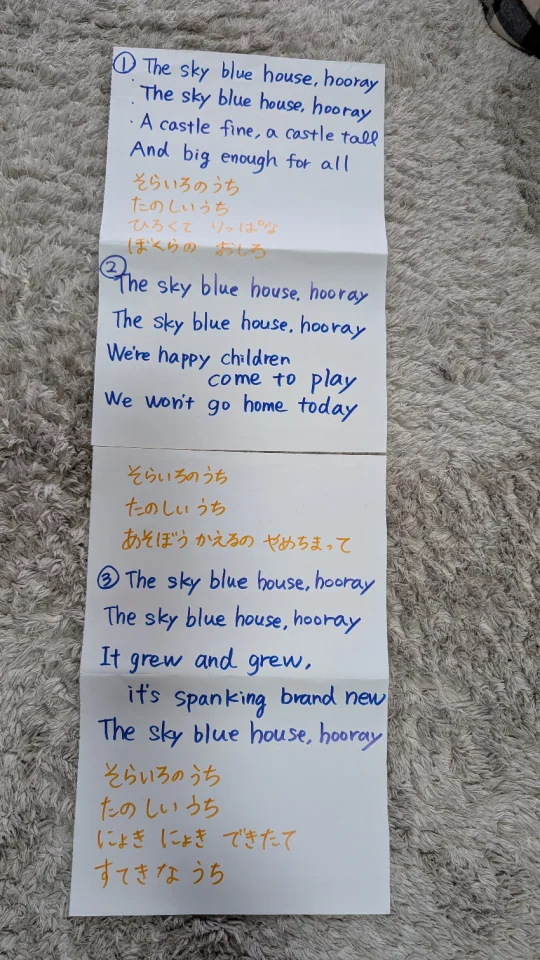 ① The sky blue house, hooray
The sky blue house, hooray
A castle fine, a castle tall
And big enough for all
そらいろのうち
たのしいうち
ひろくて りっぱな
ぼくらの おしろ
② The sky blue house, hooray
The sky blue house, hooray
We're happy children
come to play
We won't go home today
そらいろのうち
たのしい うち
あそぼう かえるの やめちまって
③ The sky blue house, hooray
The sky blue house, hooray
It grew and grew,
it's spanking brand new
The sky blue house, hooray
そらいろの うち
たの しい うち
にょき にょき できたて
すてきな うち